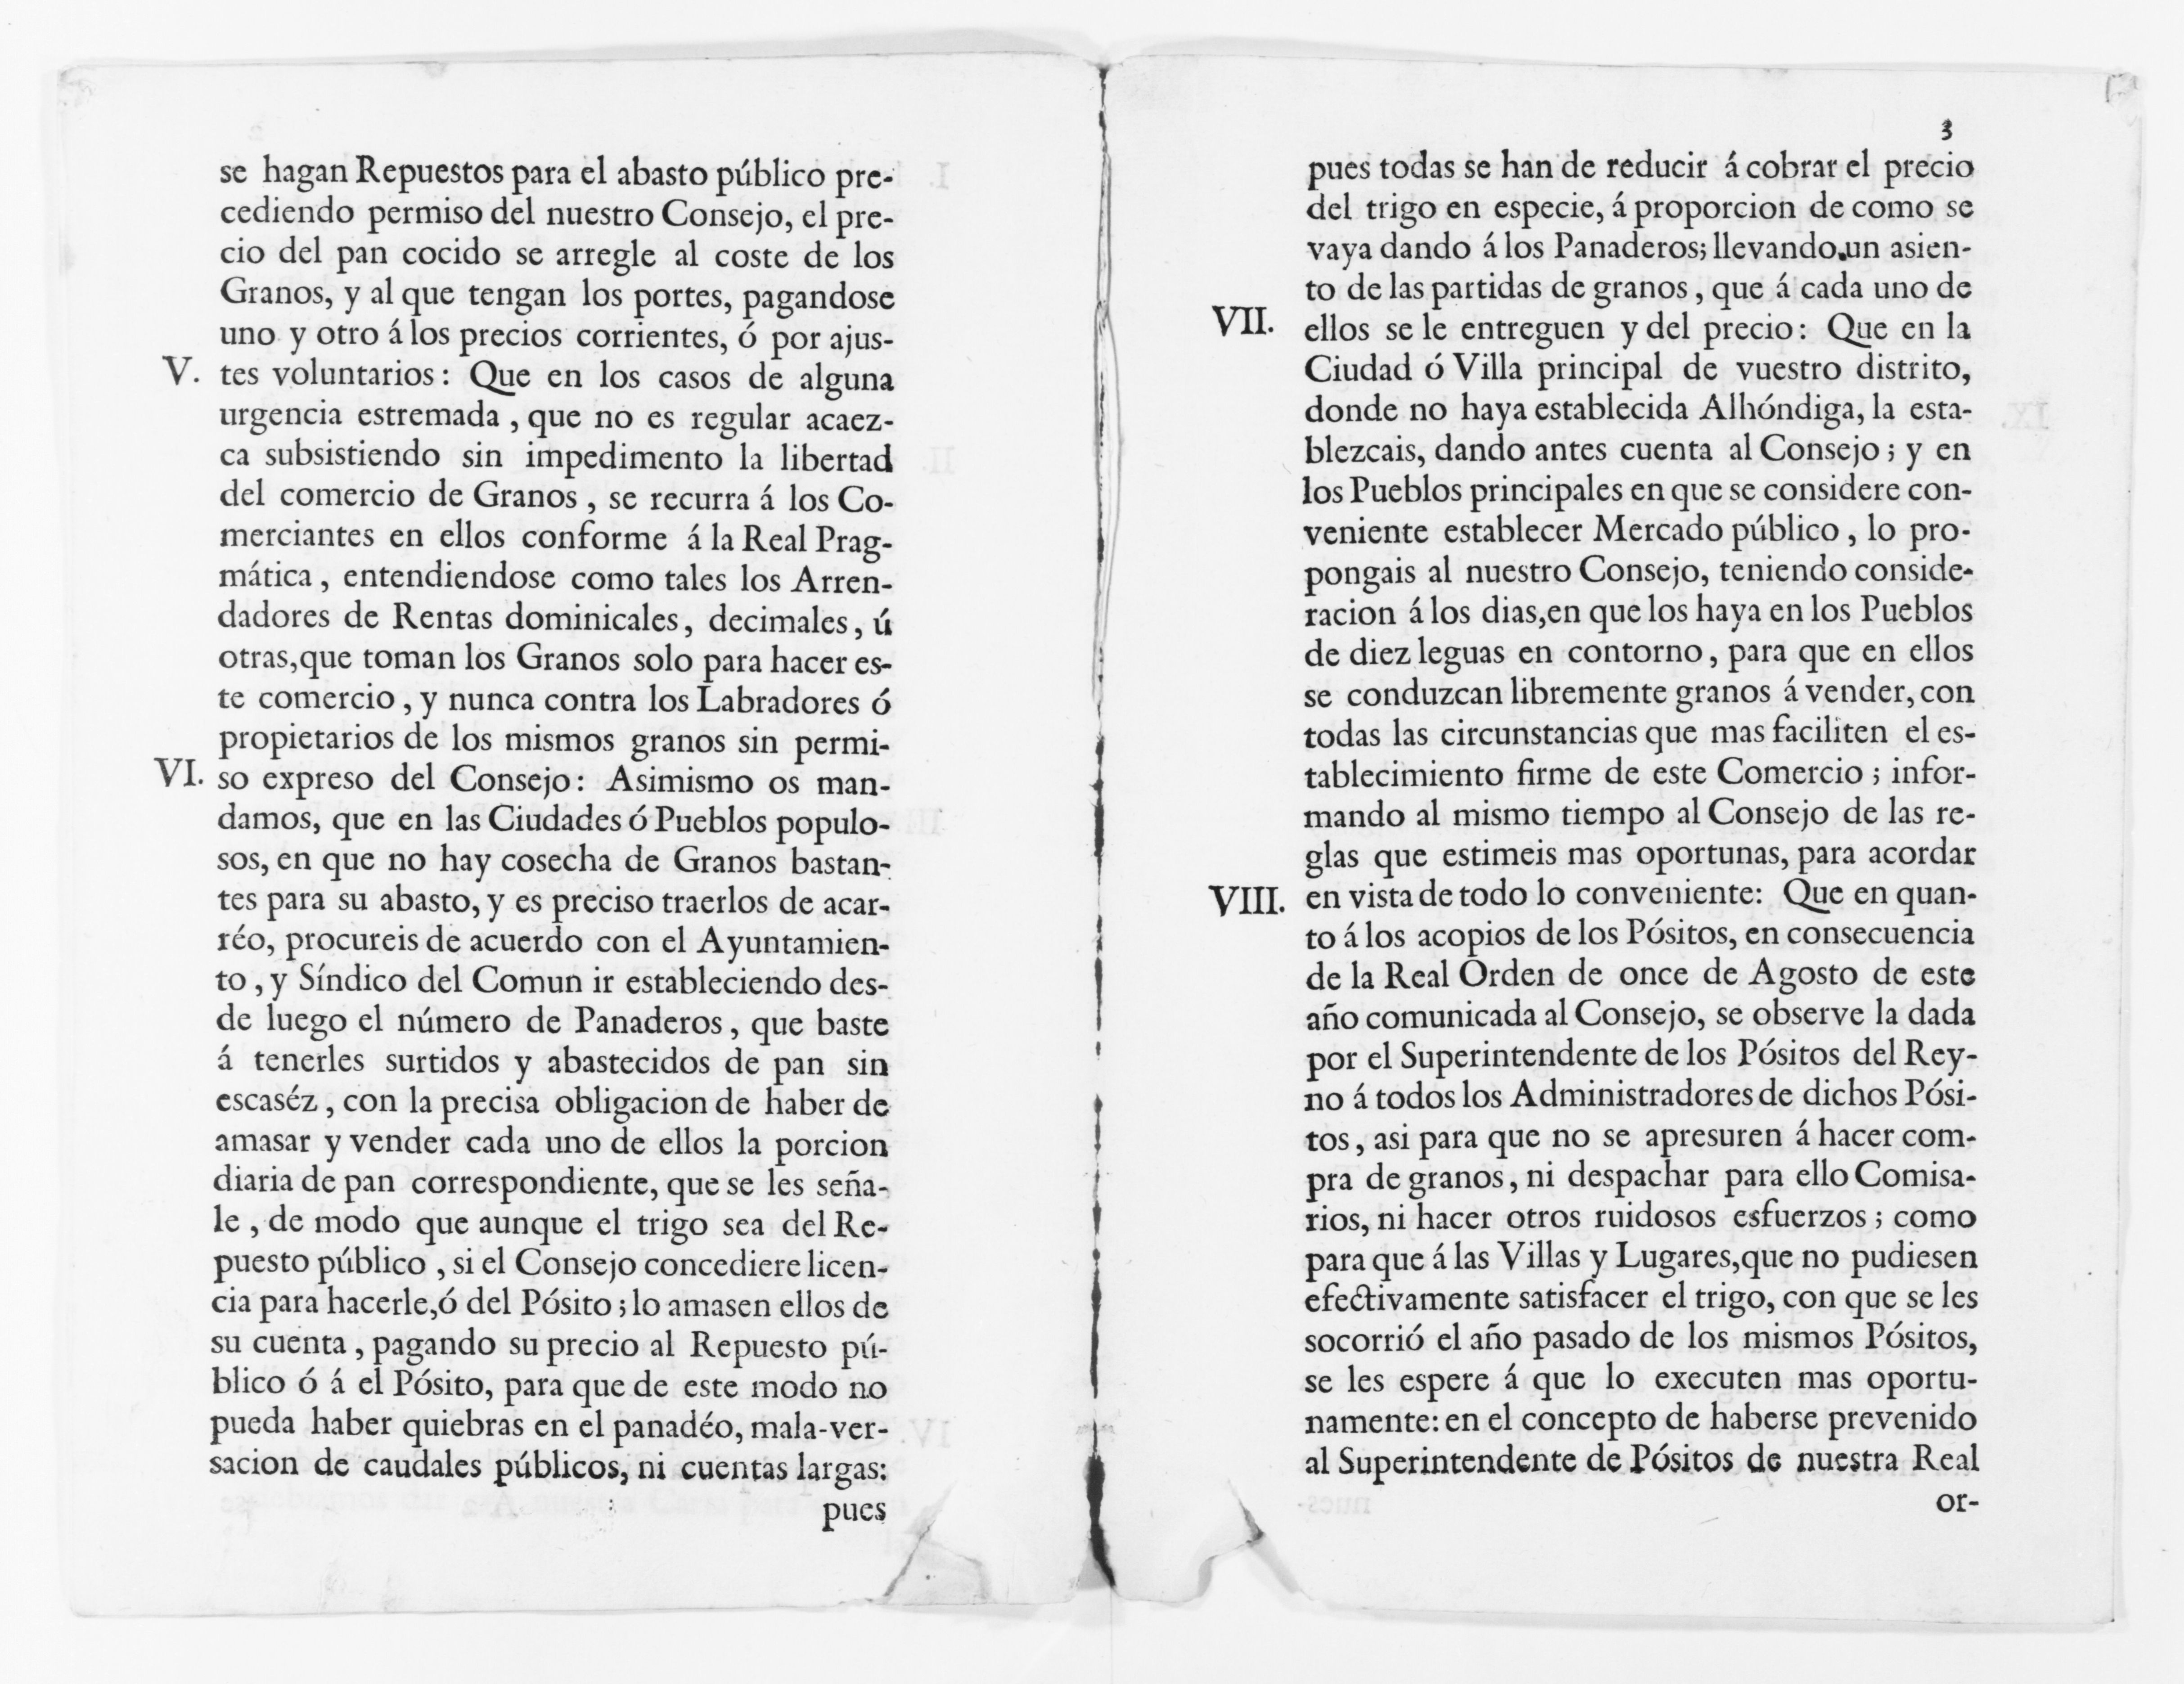 se hagan Repuestos para el abasto público pre-
cediendo permiso del nuestro Consejo, el pre-
cio del pan cocido se arregle al coste de los
Granos, y al que tengan los portes, pagandose
uno y otro á los precios corrientes, ó por ajus-
V. tes voluntarios: Que en los casos de alguna
urgencia estremada, que no es regular acaez-
ca subsistiendo sin impedimento la libertad
del comercio de Granos, se recurra á los Co-
merciantes en ellos conforme á la Real Prag-
mática, entendiendose como tales los Arren-
dadores de Rentas dominicales, decimales, ú
otras, que toman los Granos solo para hacer es-
te comercio, y nunca contra los Labradores ó
propietarios de los mismos granos sin permi-
VI. so expreso del Consejo: Asimismo os man-
damos, que en las Ciudades ó Pueblos populo-
sos, en que no hay cosecha de Granos bastan-
tes para su abasto, y es preciso traerlos de acar-
réo, procureis de acuerdo con el Ayuntamien-
to, y Síndico del Comun ir estableciendo des-
de luego el número de Panaderos, que baste
á tenerles surtidos y abastecidos de pan sin
escaséz, con la precisa obligacion de haber de
amasar y vender cada uno de ellos la porcion
diaria de pan correspondiente, que se les seña-
le, de modo que aunque el trigo sea del Re-
puesto público, si el Consejo concediere licen-
cia para hacerle, ó del Pósito; lo amasen ellos de
su cuenta, pagando su precio al Repuesto pú-
blico ó á el Pósito, para que de este modo no
pueda haber quiebras en el panadéo, mala-ver-
sacion de caudales públicos, ni cuentas largas:
pues
3
pues todas se han de reducir á cobrar el precio
del trigo en especie, á proporcion de como se
vaya dando á los Panaderos; llevando un asien-
to de las partidas de granos, que á cada uno de
VII. ellos se le entreguen y del precio: Que en la
Ciudad ó Villa principal de vuestro distrito,
donde no haya establecida Alhóndiga, la esta-
blezcais, dando antes cuenta al Consejo; y en
los Pueblos principales en que se considere con-
veniente establecer Mercado público, lo pro-
pongais al nuestro Consejo, teniendo conside-
racion á los dias, en que los haya en los Pueblos
de diez leguas en contorno, para que en ellos
se conduzcan libremente granos á vender, con
todas las circunstancias que mas faciliten el es-
tablecimiento firme de este Comercio; infor-
mando al mismo tiempo al Consejo de las re-
glas que estimeis mas oportunas, para acordar
VIII. en vista de todo lo conveniente: Que en quan-
to á los acopios de los Pósitos, en consecuencia
de la Real Orden de once de Agosto de este
año comunicada al Consejo, se observe la dada
por el Superintendente de los Pósitos del Rey-
no á todos los Administradores de dichos Pósi-
tos, asi para que no se apresuren á hacer com-
pra de granos, ni despachar para ello Comisa-
rios, ni hacer otros ruidosos esfuerzos; como
para que á las Villas y Lugares, que no pudiesen
efectivamente satisfacer el trigo, con que se les
socorrió el año pasado de los mismos Pósitos,
se les espere á que lo executen mas oportu-
namente: en el concepto de haberse prevenido
al Superintendente de Pósitos de nuestra Real
or-